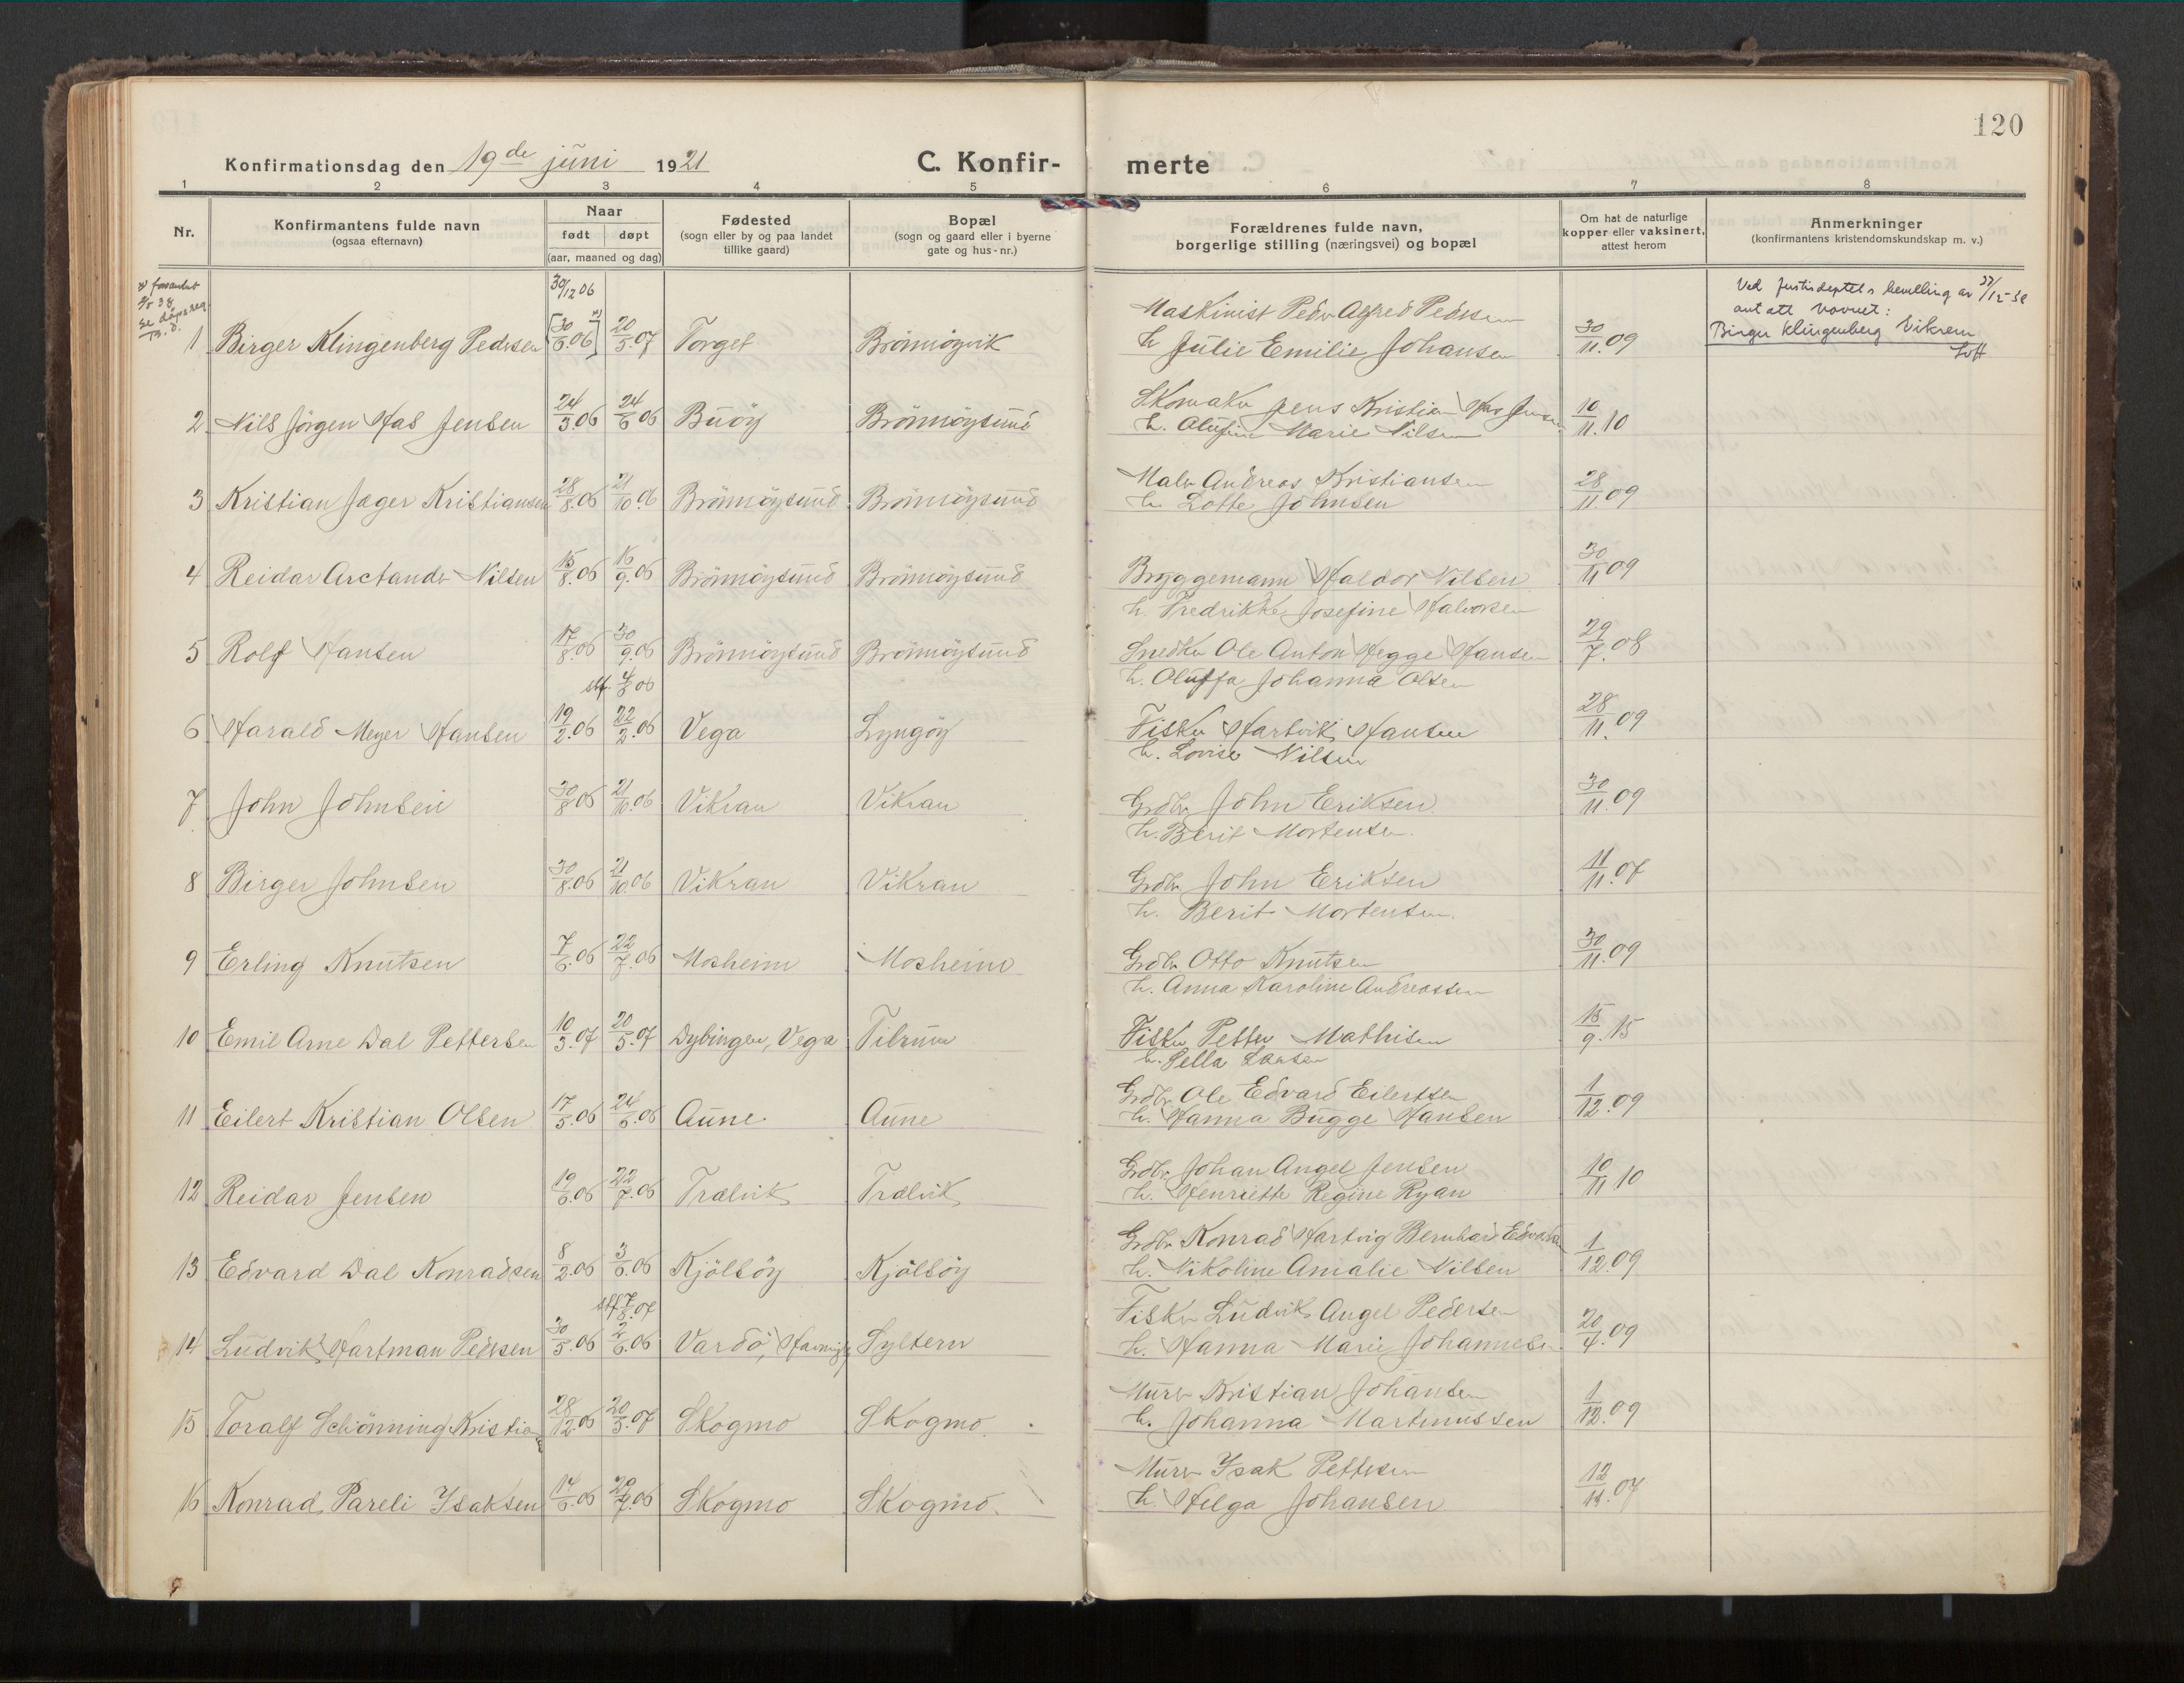 120
Konfirmationsdag den 19de juni 1921
C. Konfir- merte
1 2 3 4 5 6 7 8
Nr.
Konfirmantens fulde navn
(ogsaa efternavn)
Naar
født døpt
(aar, maaned og dag)
Fødested
(sogn eller by og paa landet
tillike gaard)
Bopæl
(sogn og gaard eller i byerne
gate og hus-nr.)
Forældrenes fulde navn,
borgerlige stilling (næringsvei) og bopæl
Om hat de naturlige
kopper eller vaksinert,
attest herom
Anmerkninger
(konfirmantens kristendomskundskap m. v.)
30/12 06
Ved Justisdeptets bevilling av
antatt navnet:
Birger Klingenberg Vikrem
Maskinist Peder Alfred Pedersen
1 Birger Klingenberg Pedersen [30/6.06] 20/5.07 Torget Brönnöyvik h Julie Emilie Johansen 30/11.09
Skomaker Jens Kristian Has Jensen
2 Nils Jörgen Has Jensen 24/3.06 24/6 06 Buöy Brönnöysund h. Olufine Marie Nilsen 10/11.10
Maler Andreas Kristiansen
3 Kristian Jæger Kristiansen 28/8.06 21/10 06 Brönnöysund Brönnöysund h. Lotte Johnsen 28/11.09
4 Reidar Arctander Nilsen 15/8.06 16/9.06 Brönnöysund Brönnöysund Bryggemann Haldor Nilsen 30/11 09
h. Fredrikke Josefine Halvorsen
5 Rolf Hansen 17/8.06 30/9.06 Brönnöysund Brönnöysund Snedker Ole Anton Hegge Hansen 29/7.08
h. Oluffa Johanna Olsen
stf. 4/6 06
6 Harald Meyer Hansen 19/2.06 22/2.06 Vega Lyngöy Fisker Hartvik Hansen 28/11.09
h. Lovise Nilsen
7 John Johnsen 30/8 06 21/10.06 Vikran Vikran Grdbr John Eriksen 30/11.09
h. Berit Mortensen.
8 Birger Johnsen 30/8.06 21/10.06 Vikran Vikran Grdbr John Eriksen 11/11.07
h. Berit Mortensen.
9 Erling Knutsen 7/6.06 22/7.06 Mosheim Mosheim Grdbr Otto Knutsen 30/11.09
h. Anna Karoline Andreassen
10 Emil Arne Dal Pettersen 10/3.07 20/5.07 Dybingen, Vega Tilrum Fisker Petter Mathisen 15/9.15
h. Pella Larsen
Grdbr Ole Edvard Eilertsen
11 Eilert Kristian Olsen 17/5.06 24/6.06 Aune Aune h. Hanna Bugge Hansen 1/12.09
Grdbr Johan Angel Jensen
12 Reidar Jensen 19/6.06 22/7.06 Trælvik Trælvik h. Henriette Regine Ryan 10/11 10
Grdbr Konrad Hartvig Bernhard Edvardsen
13 Edvard Dal Konradsen 8/2.06 3/6.06 Kjölsöy Kjölsöy h. Nikoline Amalie Nilsen 1/12.09
stf 7/8.07
Fisker Ludvik Angel Pedersen
14 Ludvik Hartman Pedersen 30/5.06 2/6.06 Vardö, Syltern h. Hanna Marie Johannesen 20/4.09
Murer Kristian Johansen
15 Toralf Schönning Kristiansen 28/12.06 20/5.07 Skogmo Skogmo. h. Johanna Martinussen 1/12.09
Murer Isak Pettersen
16 Konrad Pareli Isaksen 14/6.06 29/7.06 Skogmo Skogmo. h. Helga Johansen 12/11.07